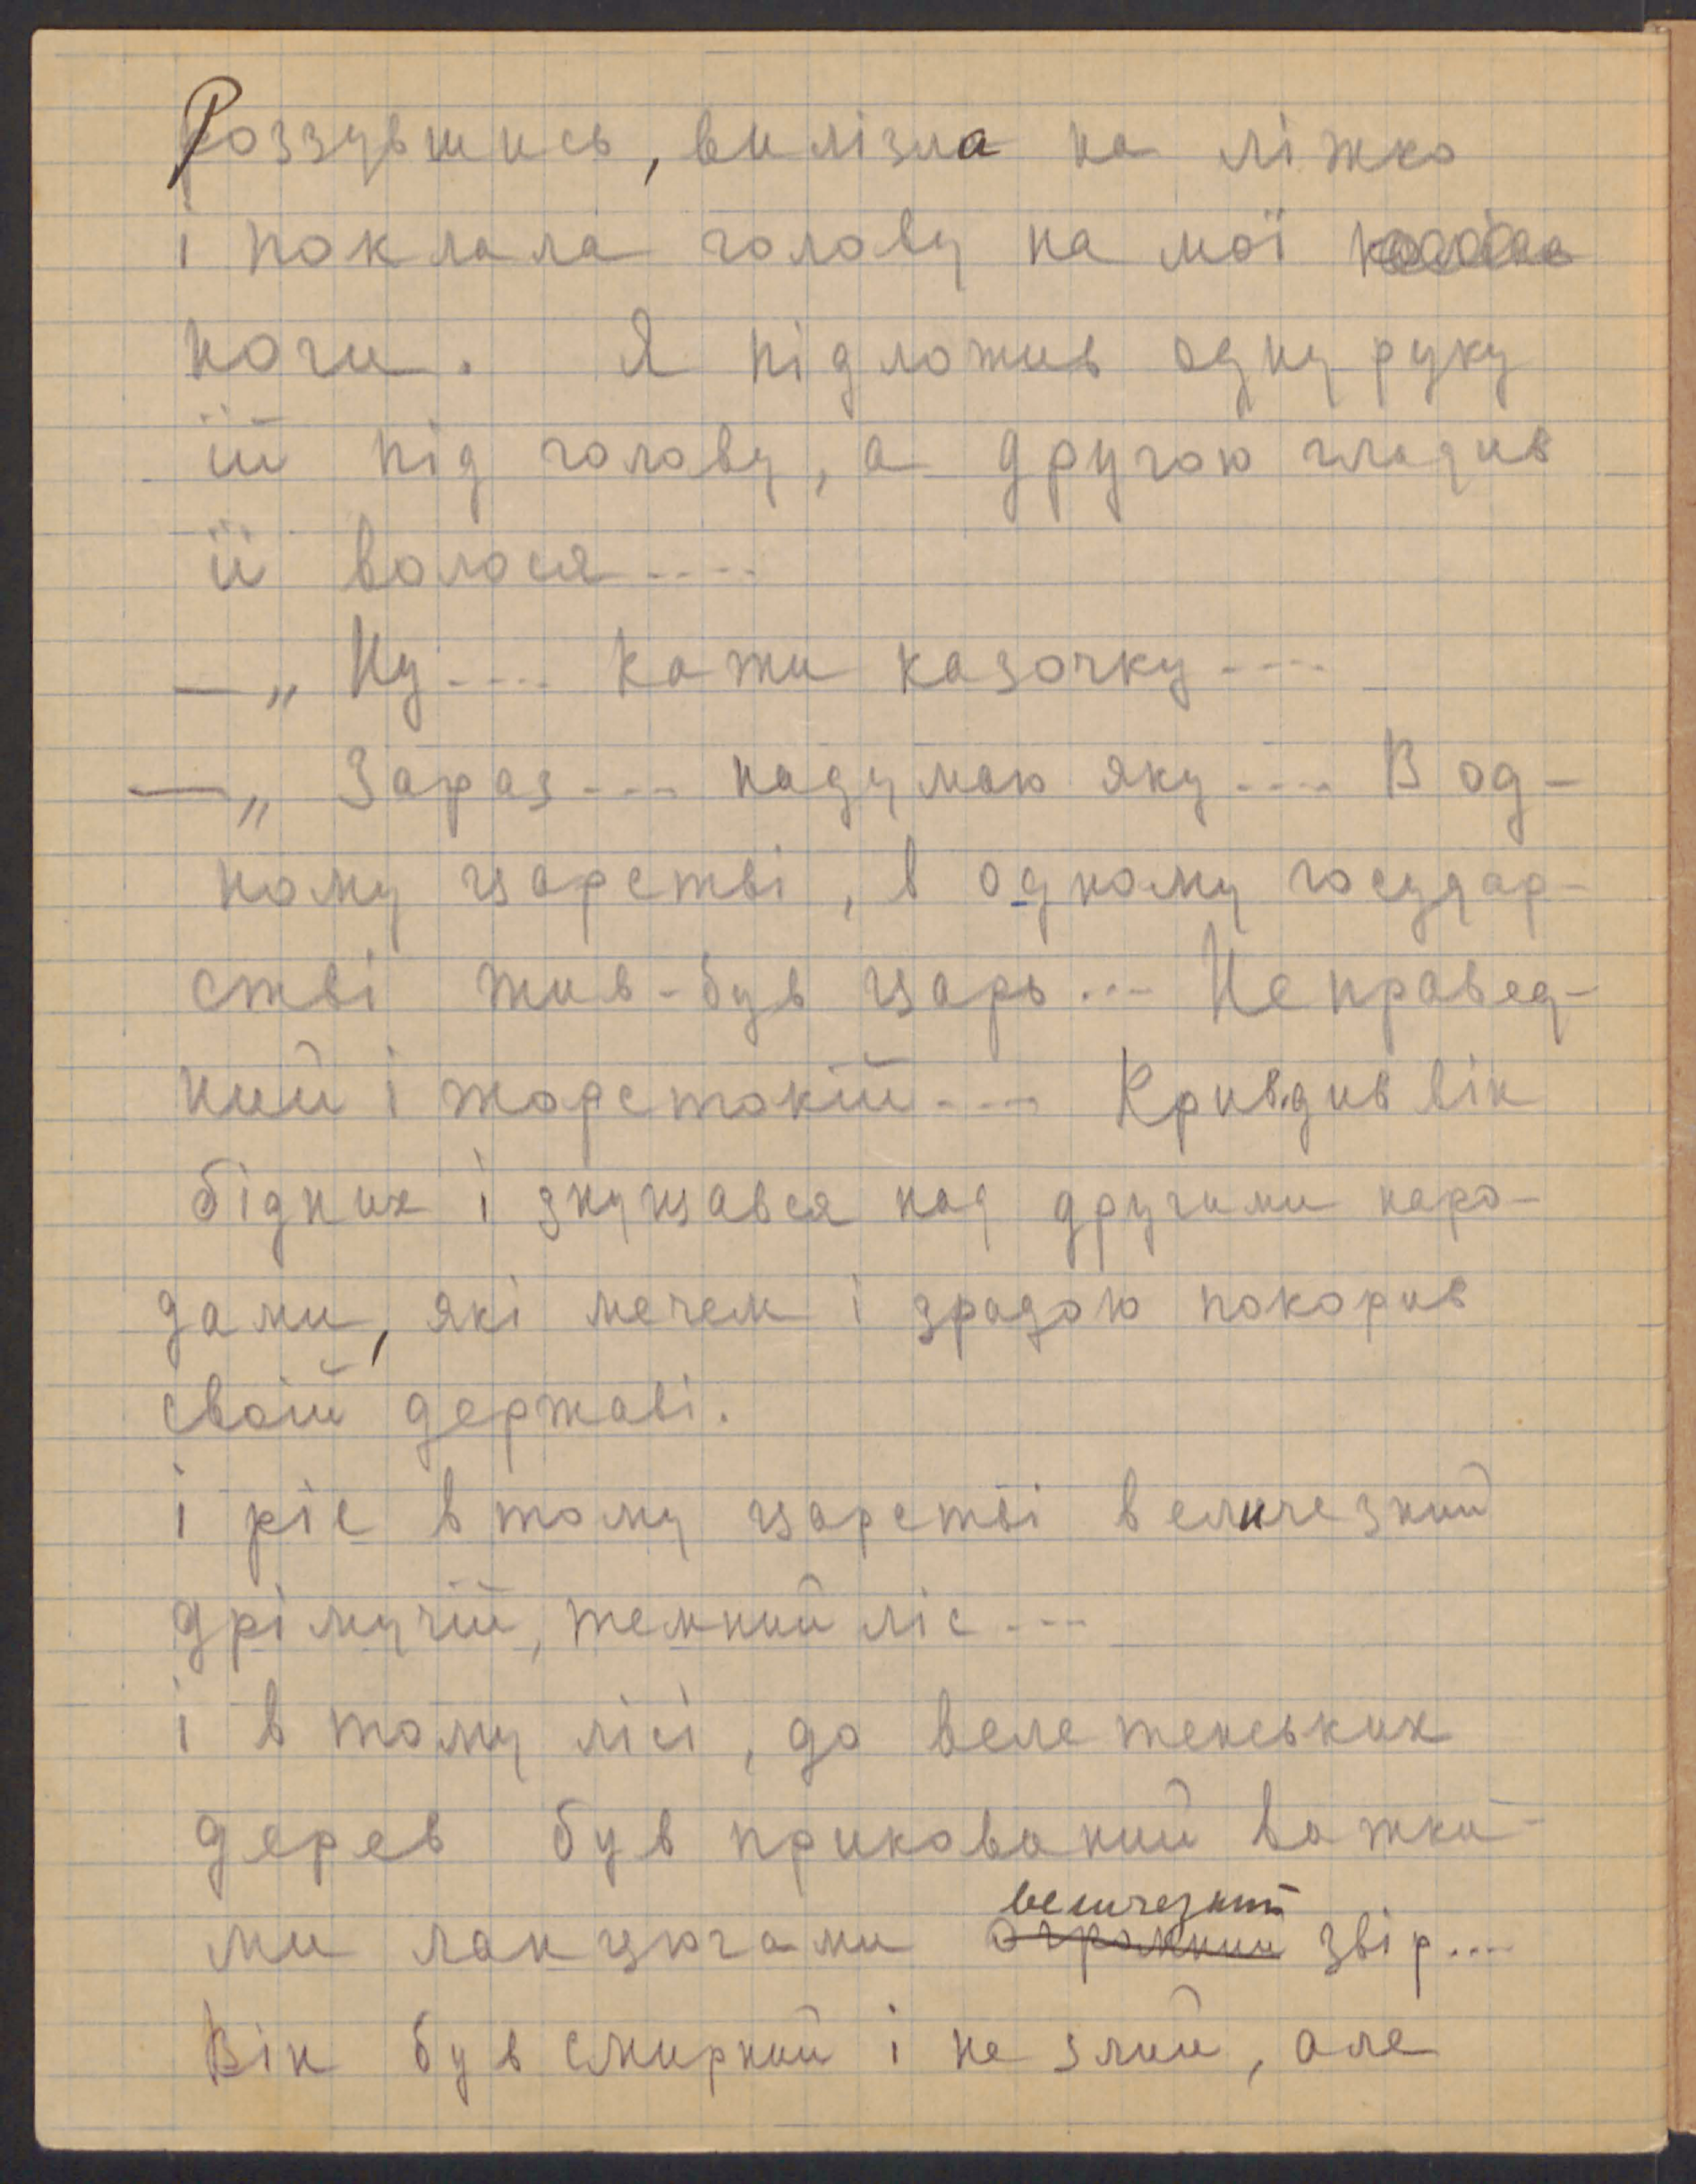 Роззувшись, вилізла на ліжко
і поклала голову на мої
ноги. Я підложив одну руку
їй під голову, а другою гладив
її волося....
—„ Ну.... кажи казочку....
—„ Зараз... надумаю яку.... В од-
ному царстві, в одному государ-
стві жив-був царь... Неправед-
ний і жорстокій... Кривдив він
бідних і знущався над другими наро-
дами, які мечем і зрадою покорив
своїй державі.
і ріс в тому царстві величезний
дрімучій, темний ліс...
і в тому лісі, до велетенських
дерев був прикований важки-
величезний
ми ланцюгами огромний звір....
Він був смирний і не злий, але